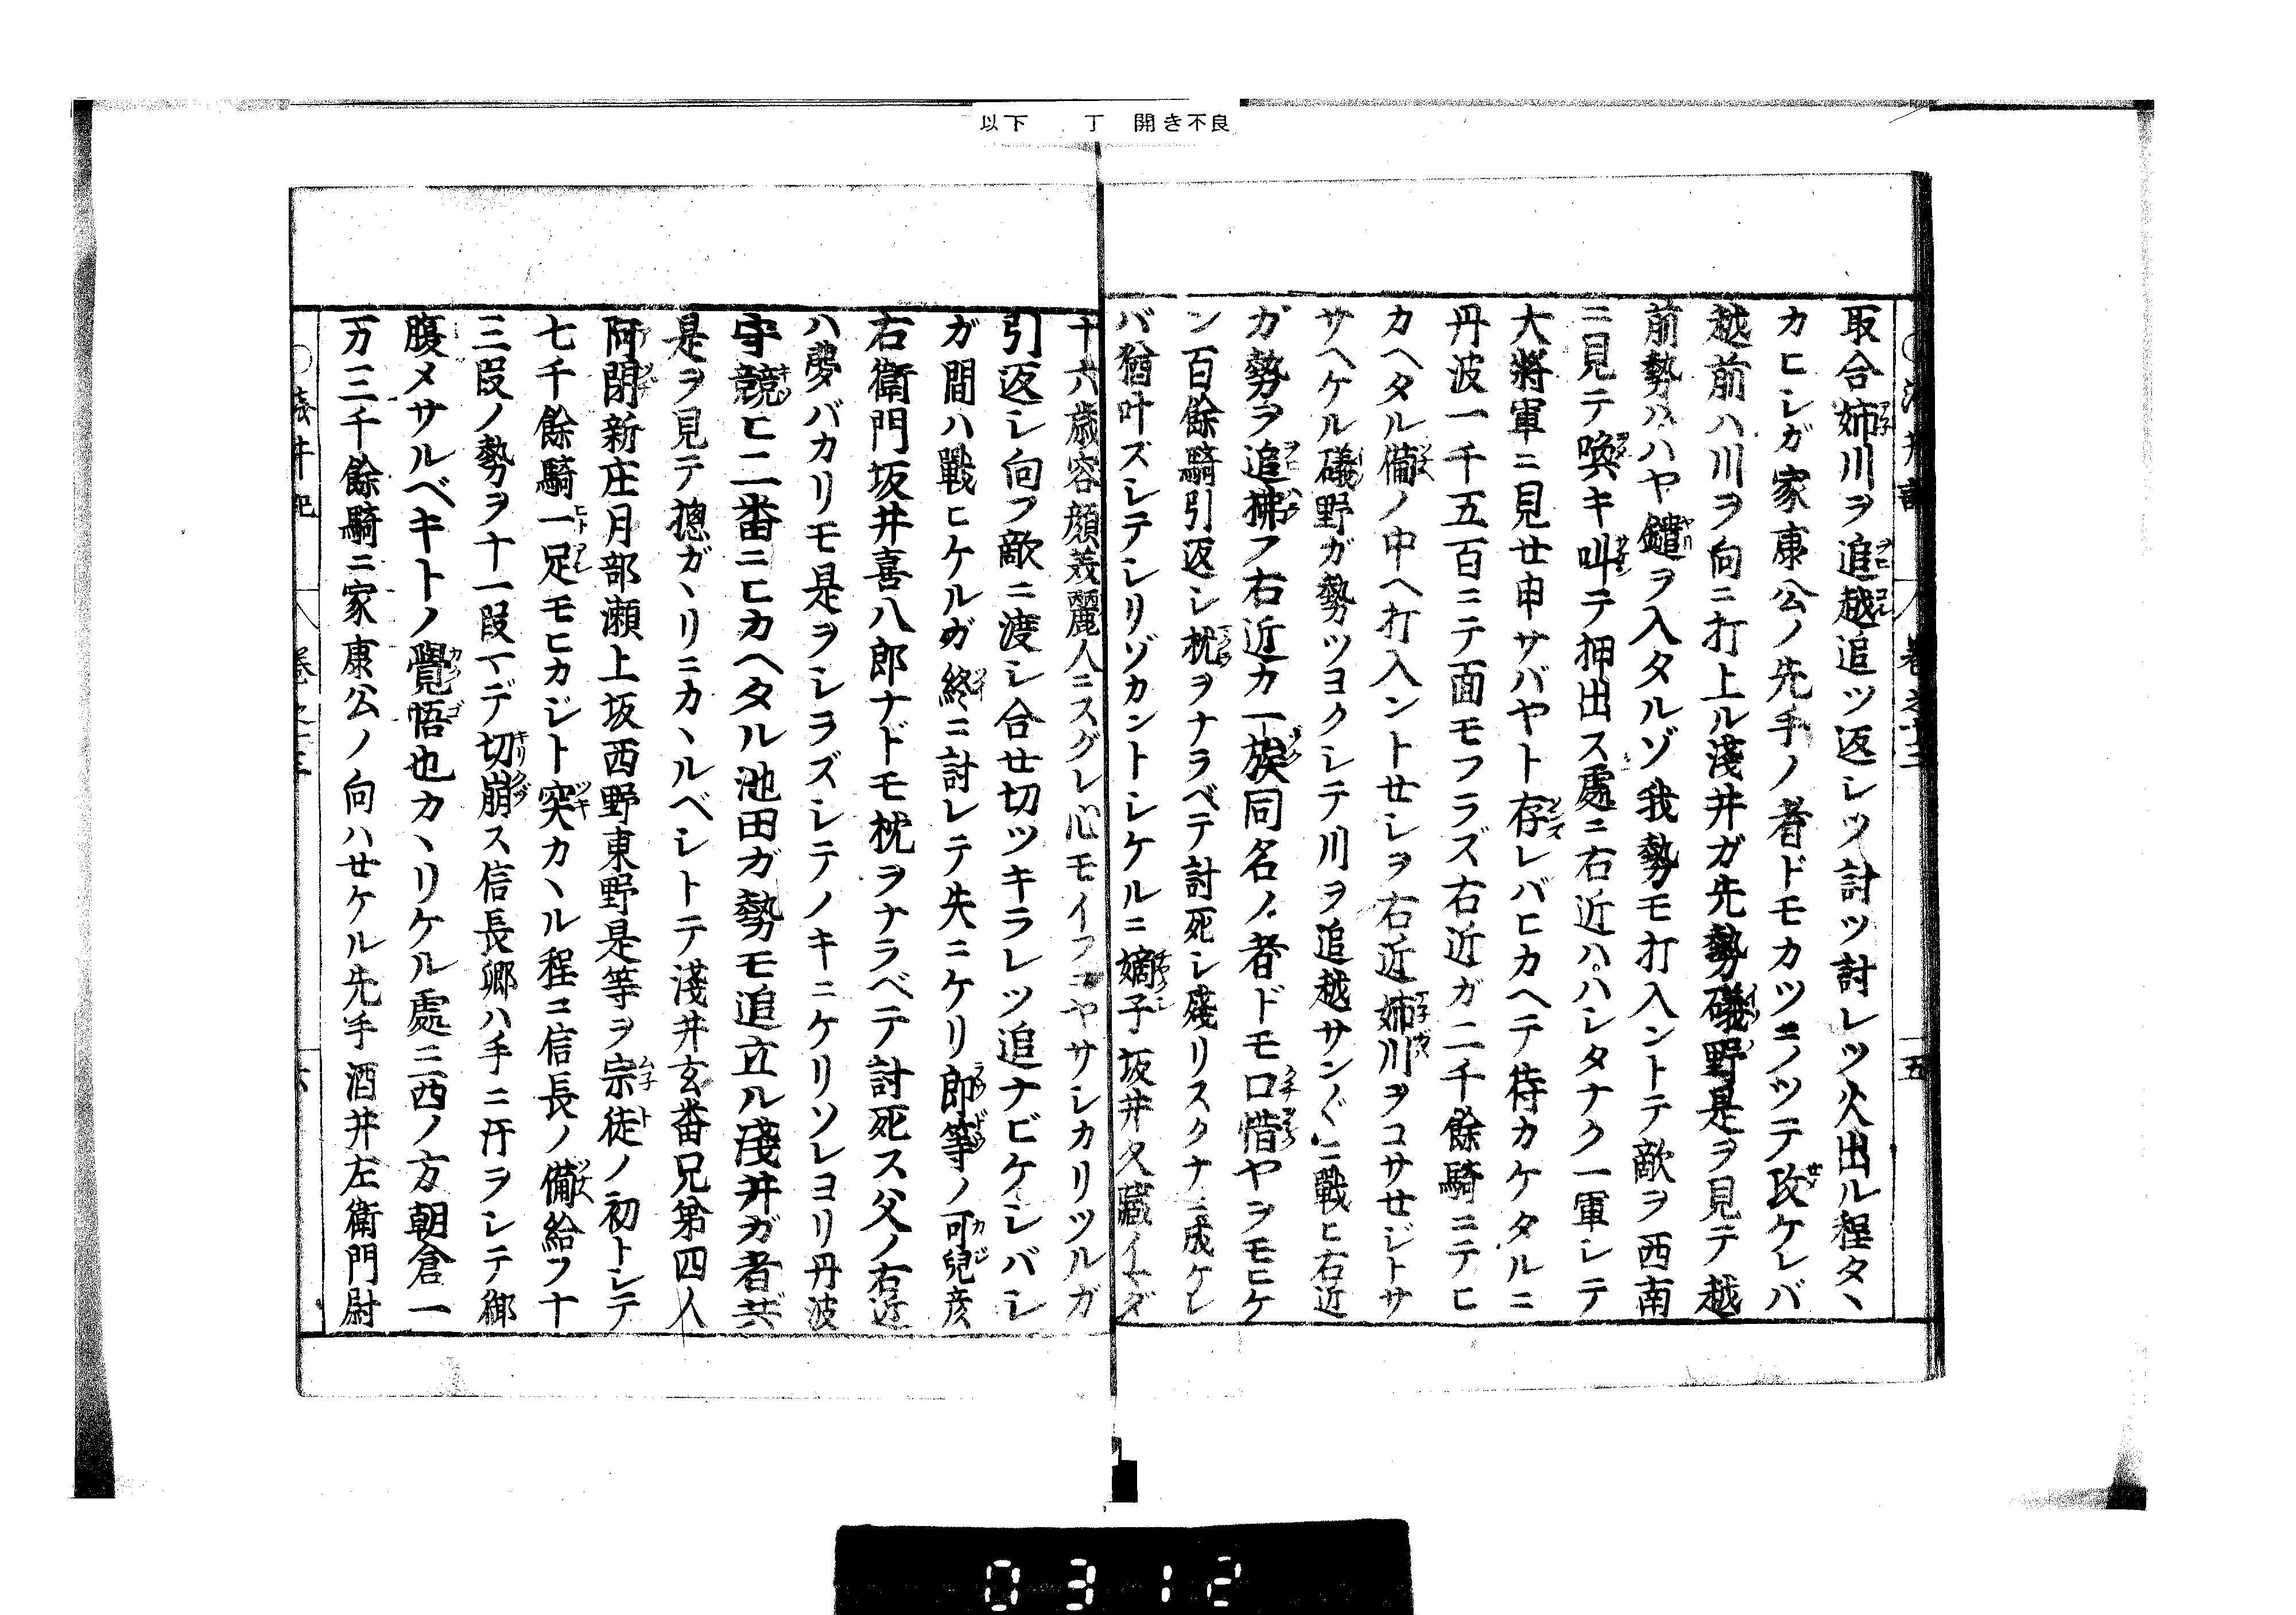 以下 丁 開き不良
取合姉川ヲ追越追ツ返レツ討ツ討レツ火出ル程タヽ
カヒシガ家康公ノ先手ノ者ドモカツニノツテ攻ケレバ
越前ハ川ヲ向ニ打上ル淺井ガ先勢礒野是ヲ見テ越
前勢ハハヤ鑓ヲ入タルゾ我勢モ打入ントテ敵ヲ西南
ニ見テ喚キ叫テ押出ス處ニ右近ハハシタナク一軍シテ
大將軍ニ見せ申サバヤト存レバヒカヘテ待カケタルニ
丹波一千五百ニテ面モフラズ右近ガ二千餘騎ニテヒ
カヘタル備ノ中ヘ打入ントせシヲ右近姉川ヲコサせジトサ
サヘケル礒野ガ勢ツヨクシテ川ヲ追越サン〲ニ戰ヒ右近
ガ勢ヲ追拂フ右近カ一族同名ノ者ドモ口惜ヤヲモヒケ
ン百餘騎引返シ枕ヲナラベテ討死シ殘リスクナニ成ケレ
バ猶叶ズシテシリゾカントシケルニ嫡子坂井久藏イマダ
十六歳容顔美麗人ニスグレ心モイフニヤサシカリツルガ
引返シ向フ敵ニ渡シ合せ切ツキラレツ追ナビケシバシ
ガ間ハ戰ヒケルガ終ニ討レテ失ニケリ郎等ノ可兒彦
右衛門坂井喜八郎ナドモ枕ヲナラベテ討死ス父ノ右近
ハ夢バカリモ是ヲシラズシテノキニケリソレヨリ丹波
守競ヒ二番ニヒカヘタル池田ガ勢モ追立ル淺井ガ者共
是ヲ見テ摠ガヽリニカヽルベシトテ淺井玄番兄第四人
阿閉新庄月部瀬上坂西野東野是等ヲ宗徒ノ初トシテ
七千餘騎一足モヒカジト突カヽル程コ信長ノ備給フ十
三段ノ勢ヲ十一段マデ切崩ス信長卿ハ手ニ汗ヲシテ御
腹メサルベキトノ覺悟也カヽリケル處ニ西ノ方朝倉一
万三千餘騎ニ家康公ノ向ハせケル先手酒井左衛門尉
0312